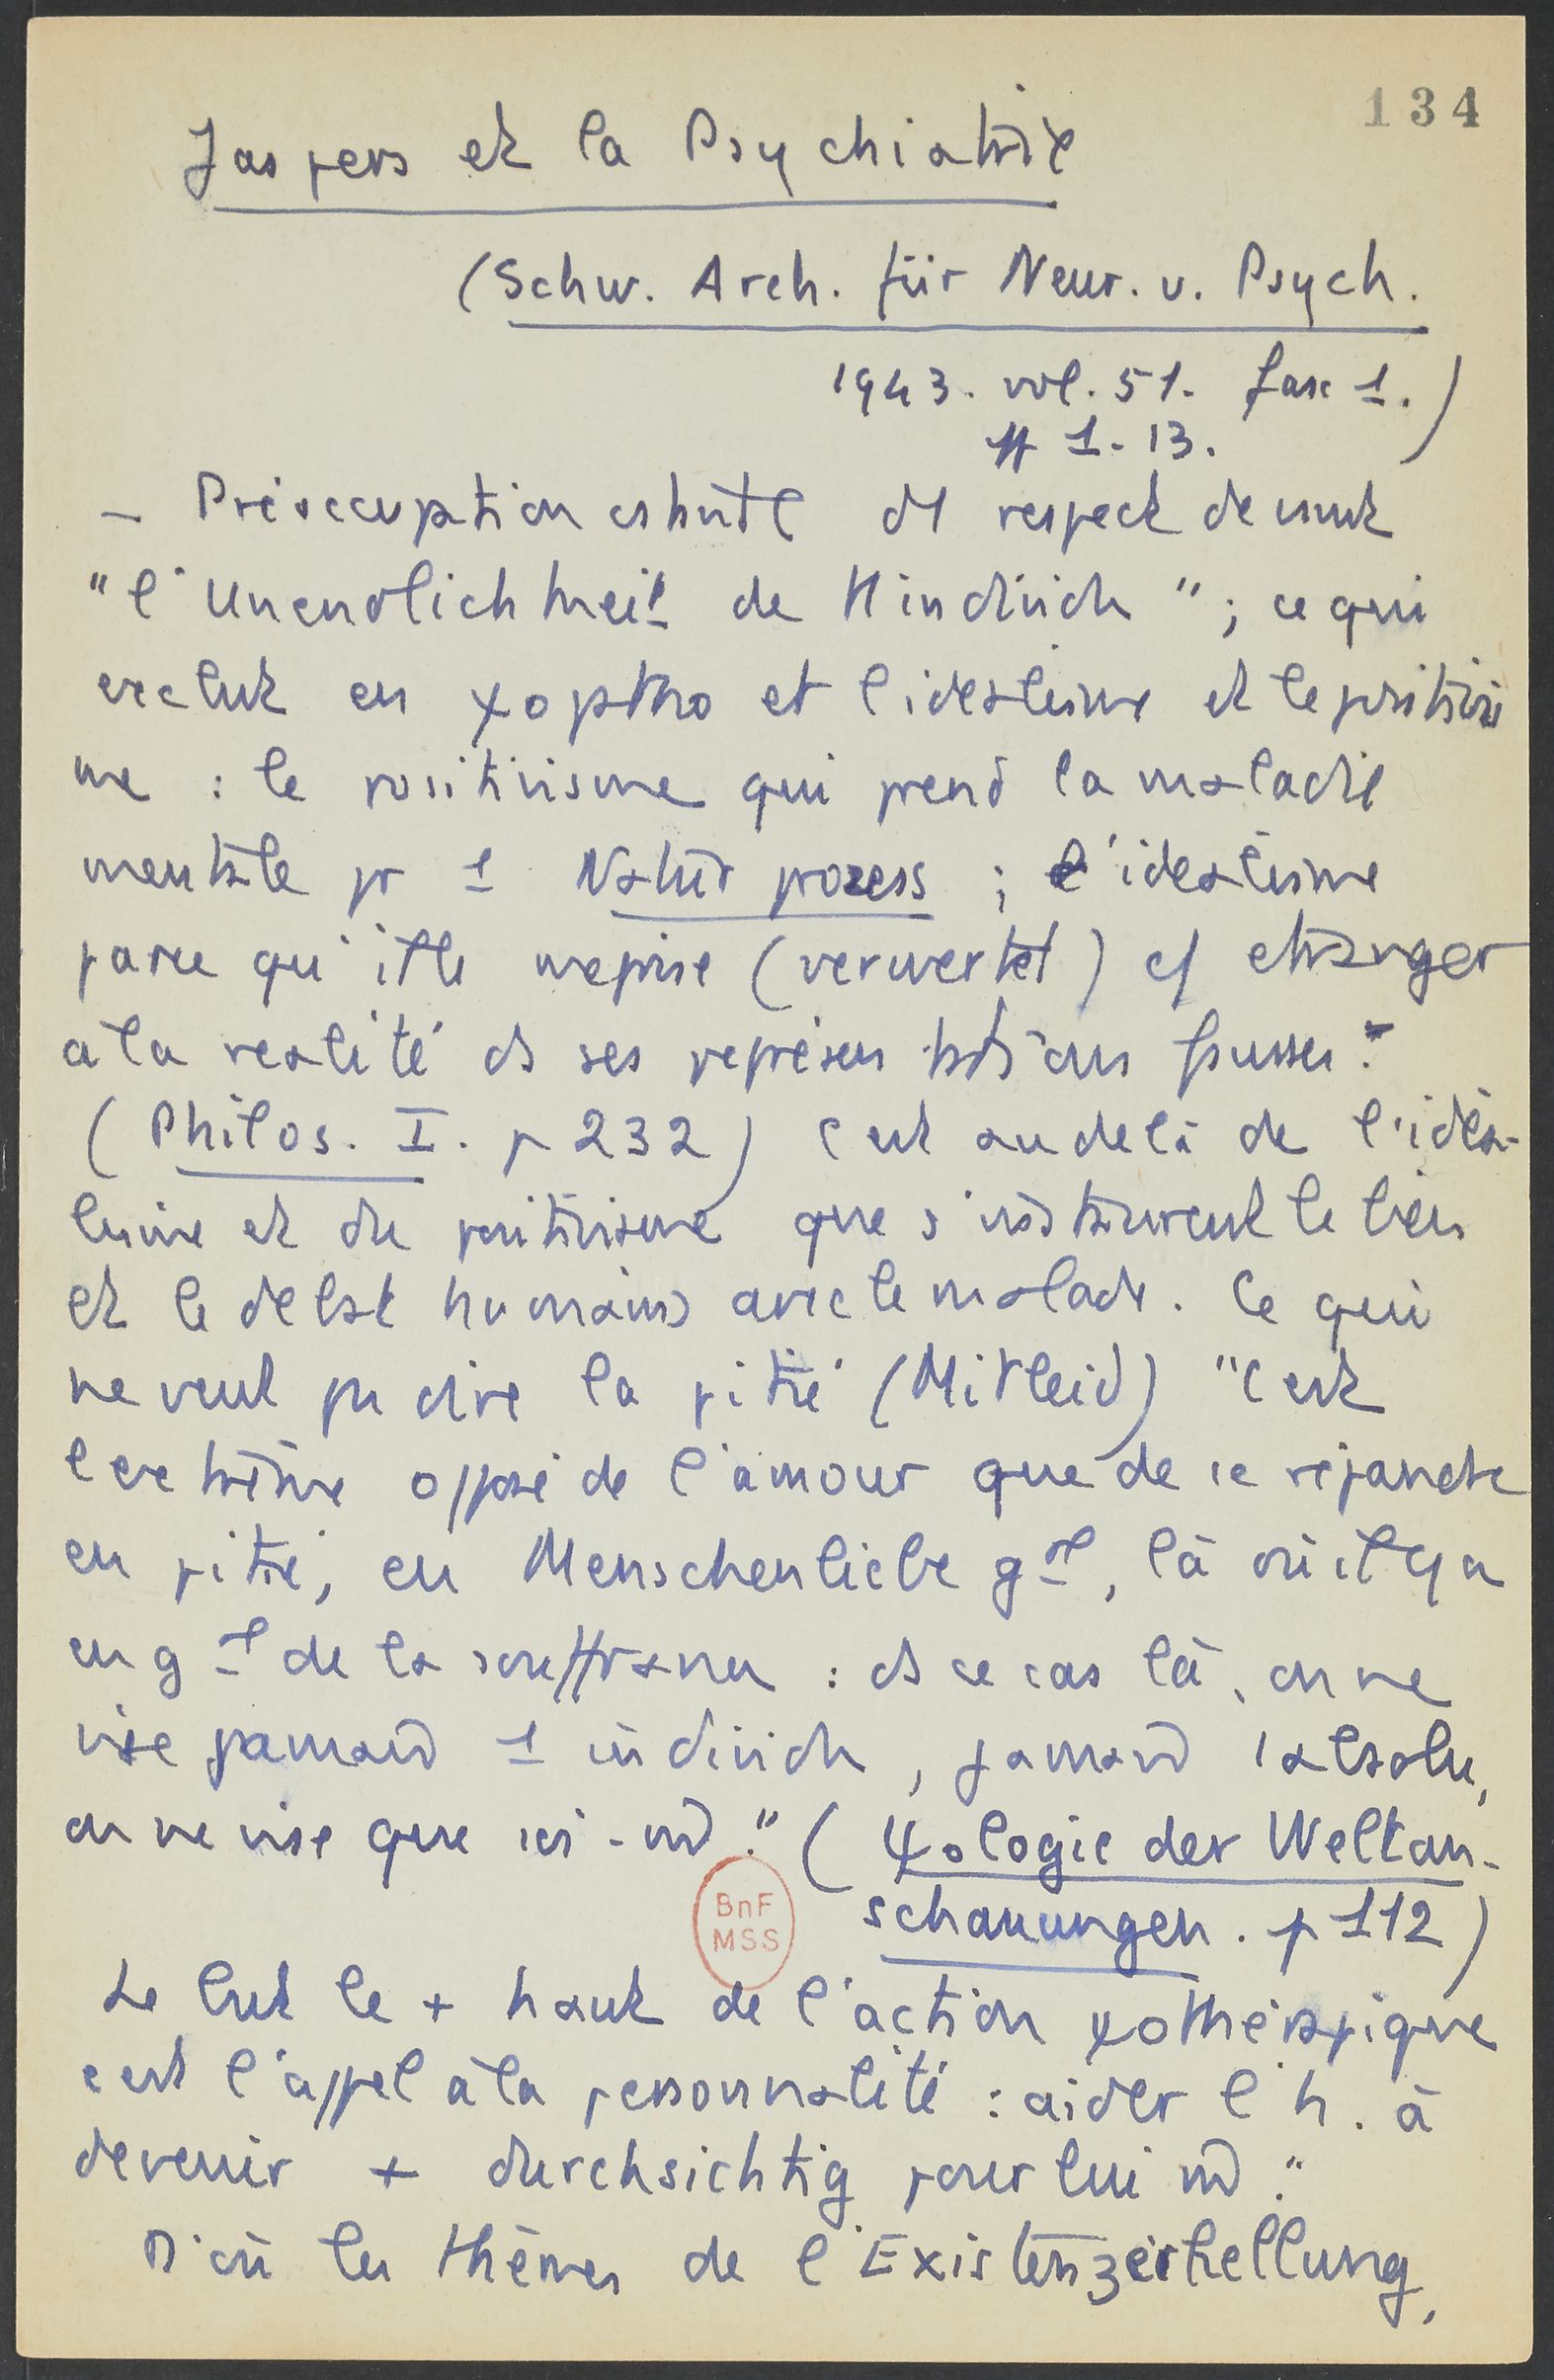 134
Jaspers et la Psychiatrie
(Schw. Arch. für Neur. u. Psych.
1943. vol. 51. fasc 1.)
pp 1-13.
- Préoccupation centrale du respect devant
"l'Unendlichkeit de l'individu" ; ce qui
exclut en ψopatho et l'idéalisme et le positivis
me : le positivisme qui prend la maladie
mentale pr 1 Naturprozess ; l'idéalisme
parce qu'il le méprise (verwertet) c/ étranger
à la réalité ds ses représentations fausses."
(Philos. I. p 232) C'est au delà de l'idéa-
lisme et du positivisme que s'instaurent le lien
et le débat humains avec le malade. Ce qui
ne veut pas dire la pitié (Mitleid) "C'est
l'extrême opposé de l'amour que de se répandre
en pitié, en Menschenliebe gal, là où il y a
en gal de la souffrance : ds ce cas là, on ne
vise jamais 1 individu, jamais l'absolu,
on ne vise que soi-m̂." (ψologie der Weltan-
schauungen. p 112)
BnF
MSS
Le but le + haut de l'action ψothérapique
c'est l'appel à la personnalité : aider l'h. à
devenir + durchsichtig pour lui m̂."
D'où les thèmes de l'Existenzerhellung,